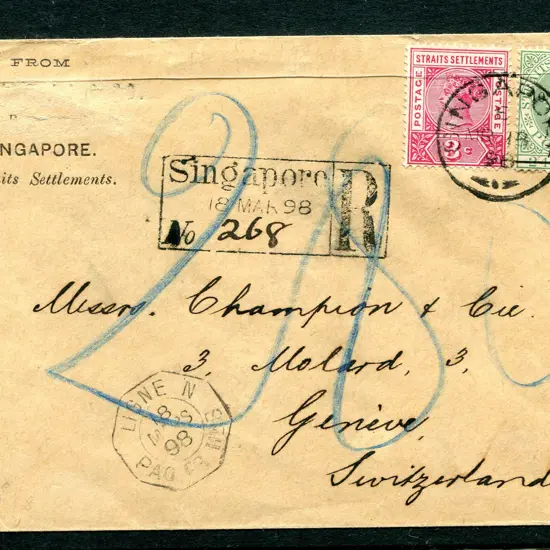 FROM
STRAITS SETTLEMENTS
POSTAGE POSTAGE
3c
NGAPORE.
its Settlements.
Singapore R
18 MAR 98
No 268
Messrs. Champion & Cie.
3, Molard, 3,
Genève,
Switzerland
LIGNE N
98
PAQ. FR.
28